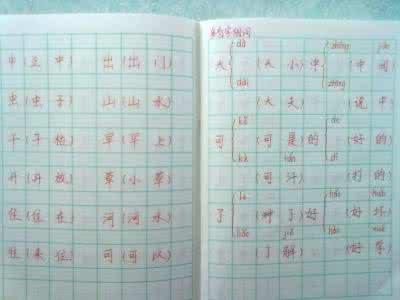 出(出门)
虫(虫子) 山(山水)
干(干枯) 早(早上)
草(小草)
住(住在) 河(河水)
往(来往) 可(可以)
多音字组词
dà zhōng jiān
大(大小) 中(中间)
dài zhòng
(大夫) (说中)
kě de
可(可是) 的(好的)
kè hán dí
(可汗) (打的)
le hǎo huài
了(种了) 好(好坏)
liǎo jiě hào xué
(了解) (好学)